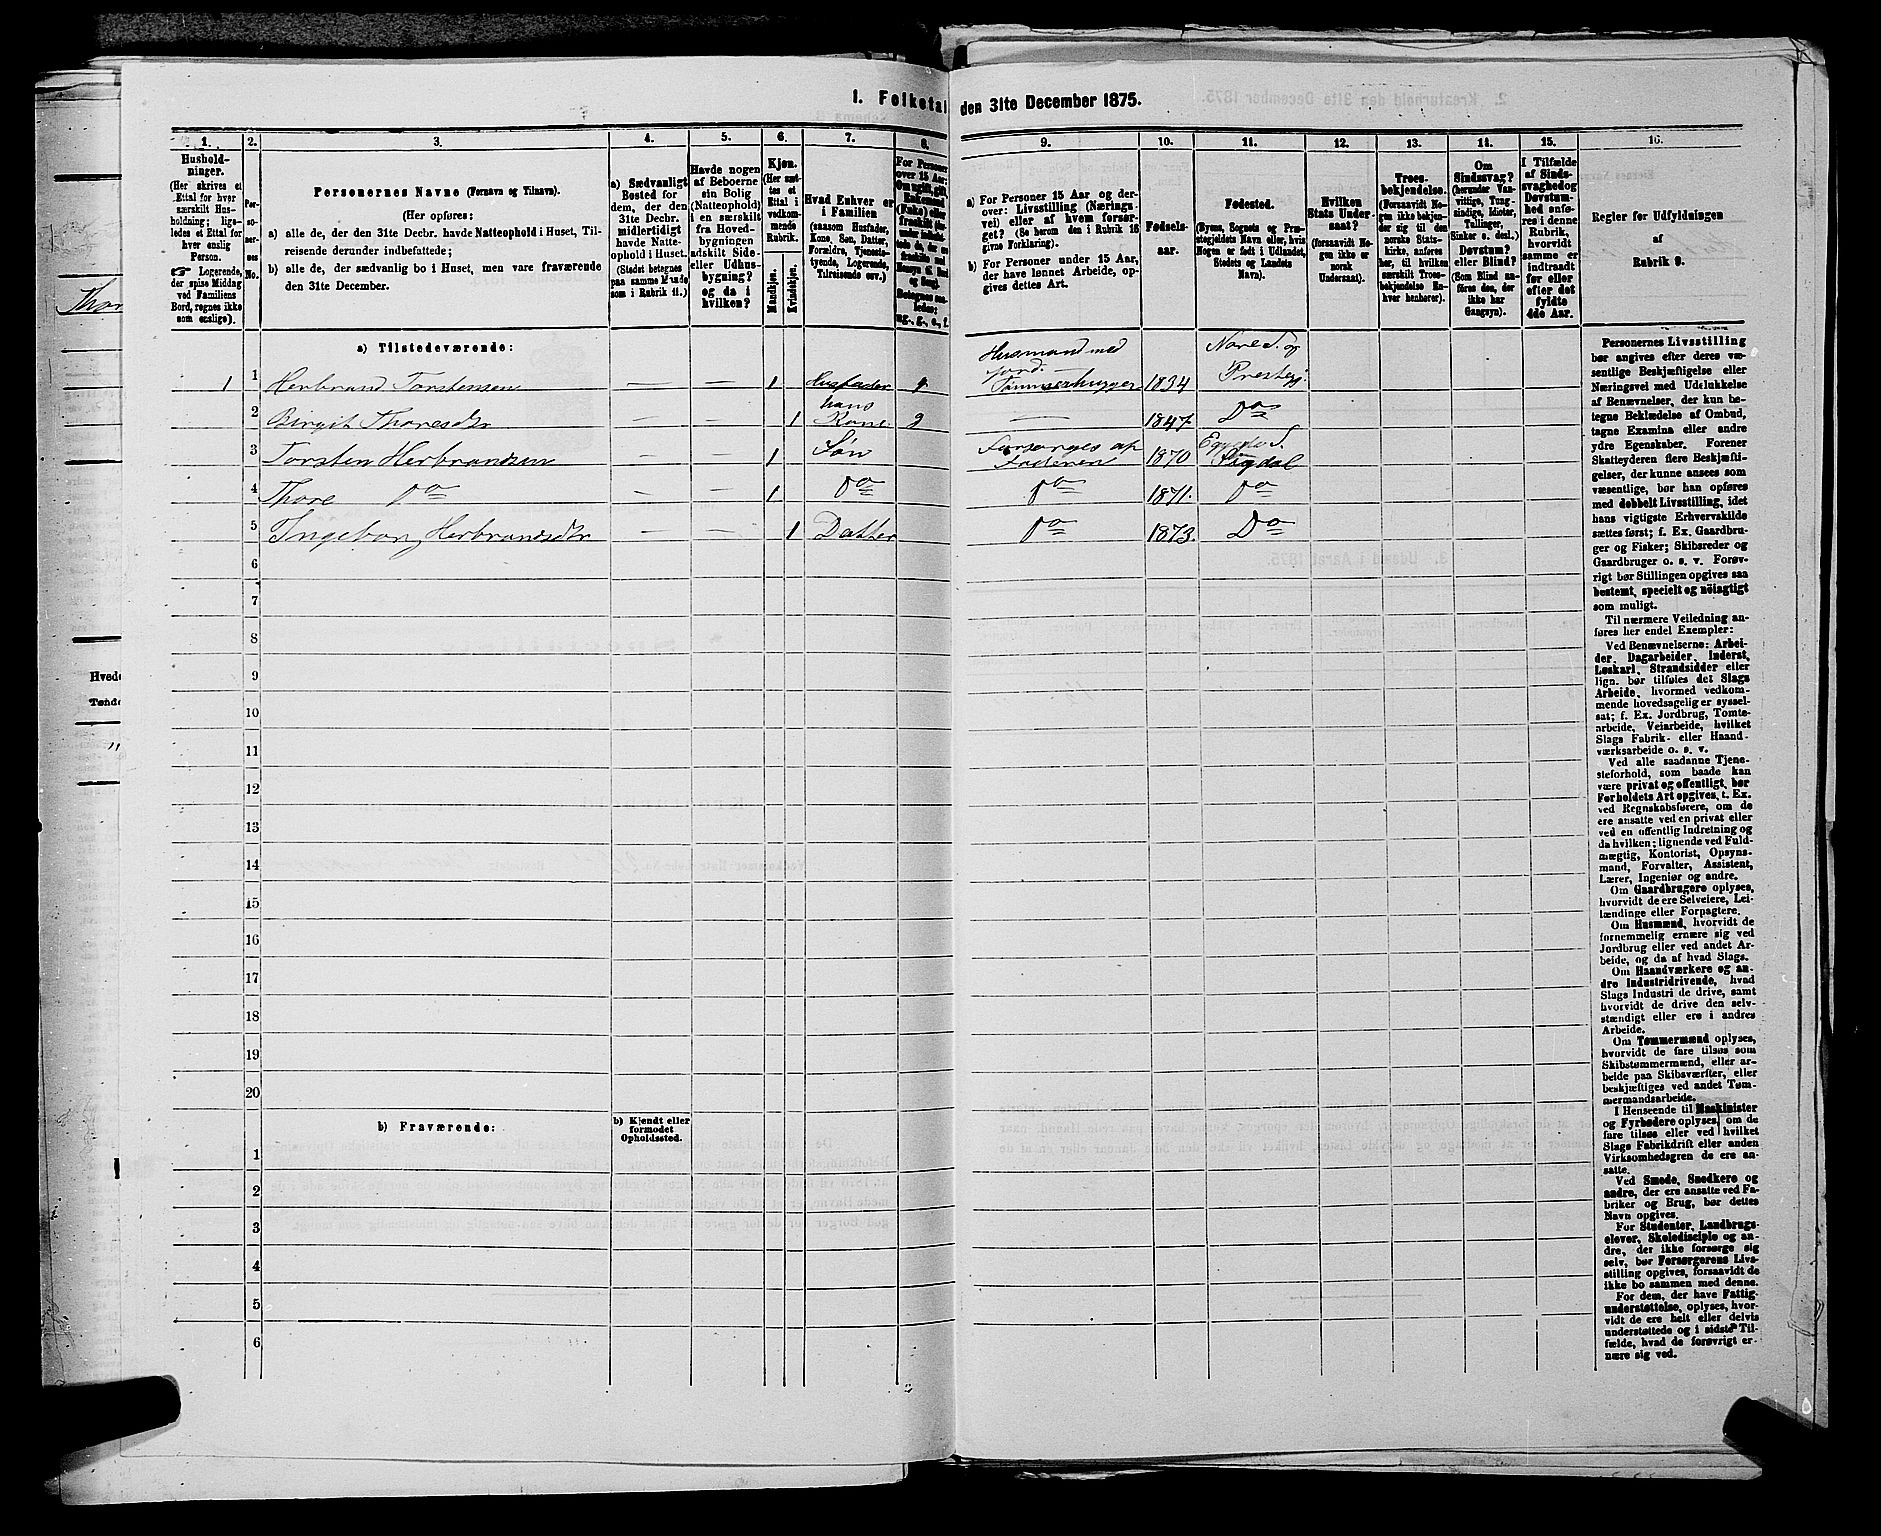 1. Folketal den 31te December 1875.
1. 2. 3. 4. 5. 6. 7. 8. 9. 10. 11. 12. 13. 14. 15. 16.
Hushold-
ninger.
(Her skrives et
Ettal for hver
særskilt Hus-
holdning; lige-
ledes et Ettal for
hver enslig
Person.
☞ Logerende,
der spise Middag
ved Familiens
Bord, regnes ikke
som enslige).
Per-
so-
ner-
nes
No.
Personernes Navne (Fornavn og Tilnavn).
(Her opføres:
a) alle de, der den 31te Decbr. havde Natteophold i Huset, Til-
reisende derunder indbefattede;
b) alle de, der sædvanlig bo i Huset, men vare fraværende
den 31te December.
a) Sædvanligt
Bosted for
dem, der den
31te Decbr.
midlertidigt
havde Natte-
ophold i Huset.
(Stedet betegnes
paa samme Maade
som i Rubrik 11.)
Havde nogen
af Beboerne
sin Bolig
(Natteophold)
i en særskilt
fra Hoved-
bygningen
adskilt Side-
eller Udhus-
bygning?
og da i
hvilken?
Kjøn.
(Her sæt-
tes et
Ettal i
vedkom-
mende
Rubrik.
Mandkjøn.
Kvindekjøn.
Hvad Enhver er
i Familien
(saasom Husfader,
Kone, Søn, Datter,
Forældre, Tjeneste-
tyende, Logerende,
Tilreisende osv.)
For Personer
over 15 Aar:
Om ugift, gift,
Enkemand
(Enke) eller
fraskilt
a) For Personer 15 Aar og der-
over: Livsstilling (Nærings-
vei) eller af hvem forsør-
get? (Se herom den i Rubrik 16
givne Forklaring).
b) For Personer under 15 Aar,
der have lønnet Arbeide, op-
gives dettes Art.
Fødsels-
aar.
Fødested.
(Byens, Sognets og Præ-
stegjeldets Navn eller, hvis
Nogen er født i Udlandet,
Stedets og Landets
Navn).
Hvilken
Stats Under-
saat?
(forsaavidt No-
gen ikke er
norsk
Undersaat).
Troes-
bekjendelse.
(Forsaavidt No-
gen ikke bekjen-
der sig til den
norske Stats-
kirke, anføres
her, til hvilken
særskilt Troes-
bekjendelse En-
hver henhører).
Om
Sindssvag?
(herunder Van-
vittige, Tung-
sindige, Idioter,
Tullinger,
Sinker o. desl.)
Døvstum?
eller Blind?
(Som Blind an-
føres den, der
ikke har
Gangsyn).
I Tilfælde
af Sinds-
svaghed og
Døvstum-
hed anfø-
res i denne
Rubrik,
hvorvidt
samme er
indtraadt
før eller
efter det
fyldte
4de Aar.
Regler for Udfyldningen
af
Rubrik 9.
a) Tilstedeværende:
1 1 Herbrand Torstensen — — 1 Husfader g Husmand med Jord. Tømmerhugger 1834 Nore S. og Prestegj.
2 Birgit Thoresdtr — — 1 hans Kone g — 1847. Do
3 Torsten Herbrandsen — — 1 Søn Forsørges af Faderen 1870 Eggedal S. Sigdal
4 Thore Do — — 1 Do Do 1871. Do
5 Ingeborg Herbrandsdtr — — 1 Datter Do 1873. Do
6
7
8
9
10
11
12
13
14
15
16
17
18
19
20
b) Fraværende:
b) Kjendt eller
formodet
Opholdssted.
1
2
3
4
5
6
Personernes Livsstilling
bør angives efter deres væ-
sentlige Beskjæftigelse eller
Næringsvei med Udelukkelse
af Benævnelser, der kun be-
tegne Beklædelse af Ombud,
tagne Examina eller andre
ydre Egenskaber. Forener
Skatteyderen flere Beskjæfti-
gelser, der kunne ansees som
væsentlige, bør han opføres
med dobbelt Livsstilling, idet
hans vigtigste Erhvervskilde
sættes først; f. Ex. Gaardbru-
ger og Fisker; Skibsreder og
Gaardbruger o. s. v. Forøv-
rigt bør Stillingen opgives saa
bestemt, specielt og nøiagtigt
som muligt.
Til nærmere Veiledning an-
føres her endel Exempler:
Ved Benævnelserne: Arbei-
der, Dagarbeider, Inderst,
Løskarl, Strandsidder eller
lign. bør tilføies det Slags
Arbeide, hvormed vedkom-
mende hovedsagelig er syssel-
sat; f. Ex. Jordbrug, Tomte-
arbeide, Veiarbeide, hvilket
Slags Fabrik- eller Haand-
værksarbeide o. s. v.
Ved alle saadanne Tjene-
steforhold, som baade kan
være privat og offentligt, bør
Forholdets Art opgives, t. Ex.
ved Regnskabsførere, om de
ere ansatte ved en privat eller
ved en offentlig Indretning og
da hvilken; lignende ved Fuld-
mægtig, Kontorist, Opsyns-
mand, Forvalter, Assistent,
Lærer, Ingeniør og andre.
Om Gaardbrugere oplyses,
hvorvidt de ere Selveiere, Lei-
lændinge eller Forpagtere.
Om Husmænd, hvorvidt de
fornemmelig ernære sig ved
Jordbrug eller ved andet Ar-
beide, og da af hvad Slags.
Om Haandværkere og an-
dre Industridrivende, hvad
Slags Industri de drive, samt
hvorvidt de drive den selv-
stændigt eller ere i andres
Arbeide.
Om Tømmermænd oplyses,
hvorvidt de fare tilsøs som
Skibstømmermænd, eller ar-
beide paa Skibsværfter, eller
beskjæftiges ved andet Tøm-
mermandsarbeide.
I Henseende til Maskinister
og Fyrbødere oplyses, om de
fare tilsøs eller ved hvilket
Slags Fabrikdrift eller anden
Virksomhedsgren de ere an-
satte.
Ved Smede, Snedkere og
andre, der ere ansatte ved Fa-
briker og Brug, bør dettes
Navn opgives.
For Studenter, Landbrugs-
elever, Skoledisciple og an-
dre, der ikke forsørge sig
selv, bør Forsørgerens Livs-
stilling opgives, forsaavidt de
ikke bo sammen med denne.
For dem, der have Fattig-
understøttelse, oplyses, hvor-
vidt de ere helt eller delvis
understøttede og i sidste Til-
fælde, hvad de forøvrigt er-
nære sig ved.